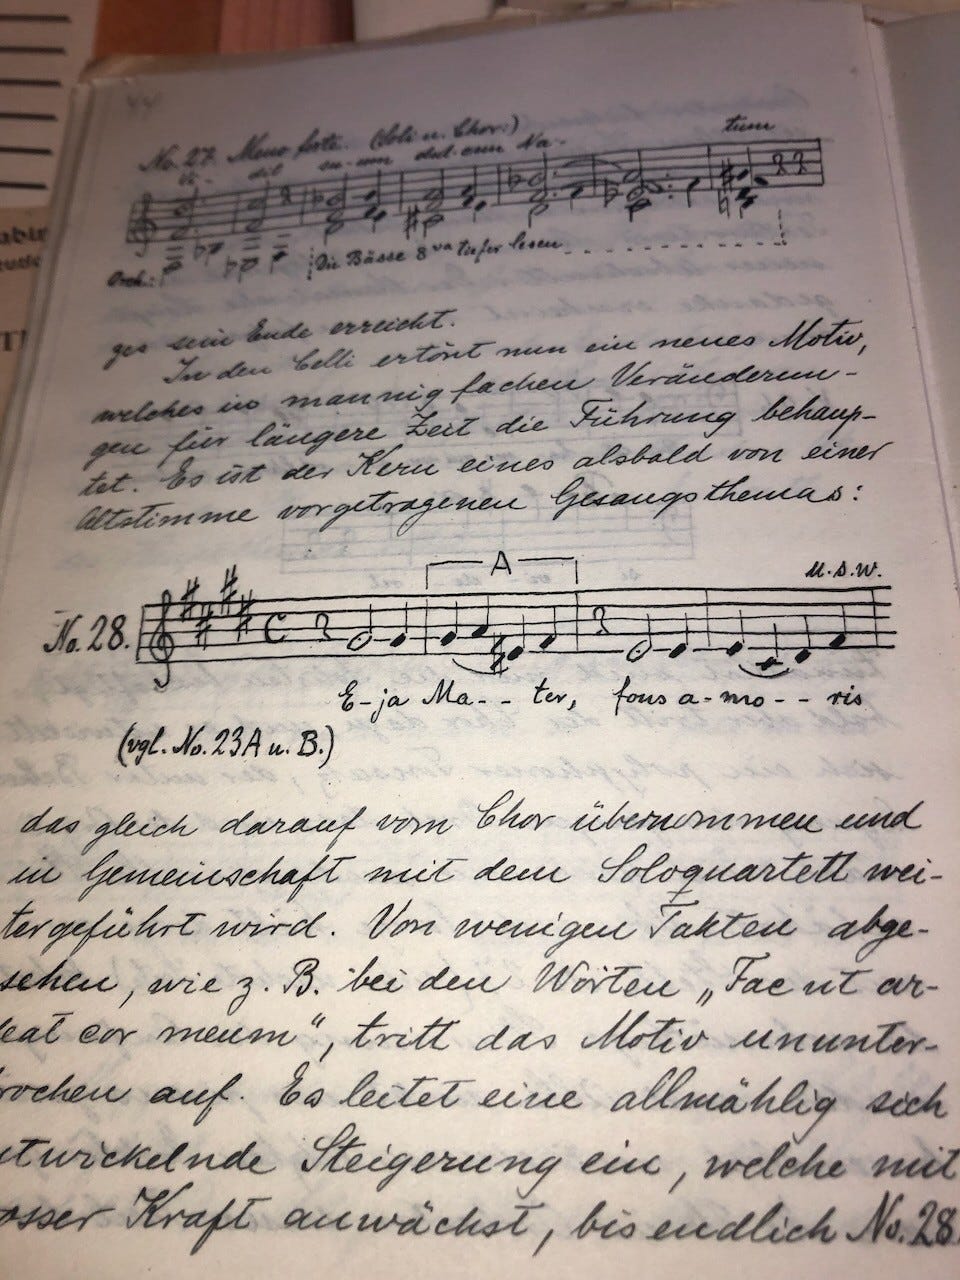 44
No. 27. Meno forte. (Soli u. Chor:)
vi- dit su-um dul-cem Na- tum
Orch.: Die Bässe 8va tiefer lesen
ges sein Ende erreicht.
In den Celli ertönt nun ein neues Motiv,
welches in mannigfachen Veränderun-
gen für längere Zeit die Führung behaup-
tet. Es ist der Kern eines alsbald von einer
Altstimme vorgetragenen Gesangsthemas:
A
u.s.w.
No. 28.
E-ja Ma-- ter, fons a-mo-- ris
(vgl. No. 23A u. B.)
das gleich darauf vom Chor übernommen und
in Gemeinschaft mit dem Soloquartett wei-
tergeführt wird. Von wenigen Takten abge-
sehen, wie z. B. bei den Worten „Fac ut ar-
eat cor meum“, tritt das Motiv ununter-
rochen auf. Es leitet eine allmählig sich
twickelnde Steigerung ein, welche mit
osser Kraft anwächst, bis endlich No. 28.